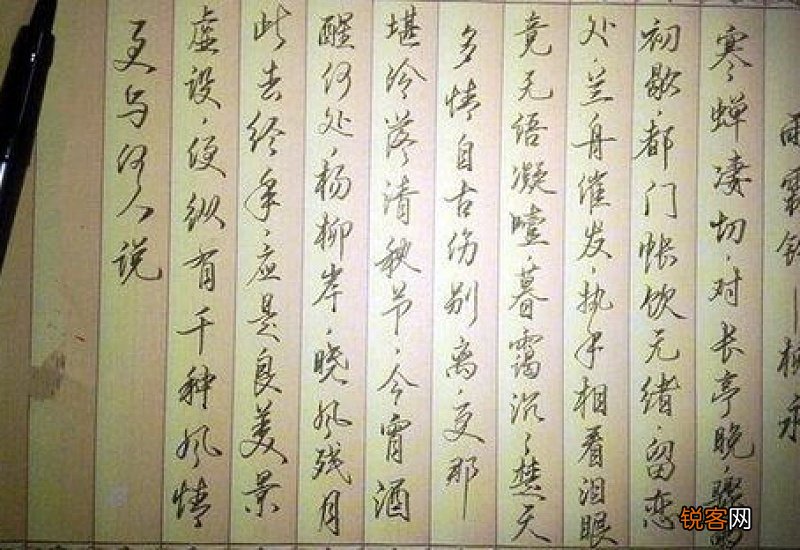 雨霖铃—柳永
寒蝉凄切，对长亭晚，骤雨
初歇，都门帐饮无绪，留恋
处，兰舟催发，执手相看泪眼
竟无语凝噎，暮霭沉沉楚天
多情自古伤别离，更那
堪冷落清秋节，今宵酒
醒何处，杨柳岸，晓风残月
此去经年，应是良美景
虚设，便纵有千种风情
更与何人说
锐客网